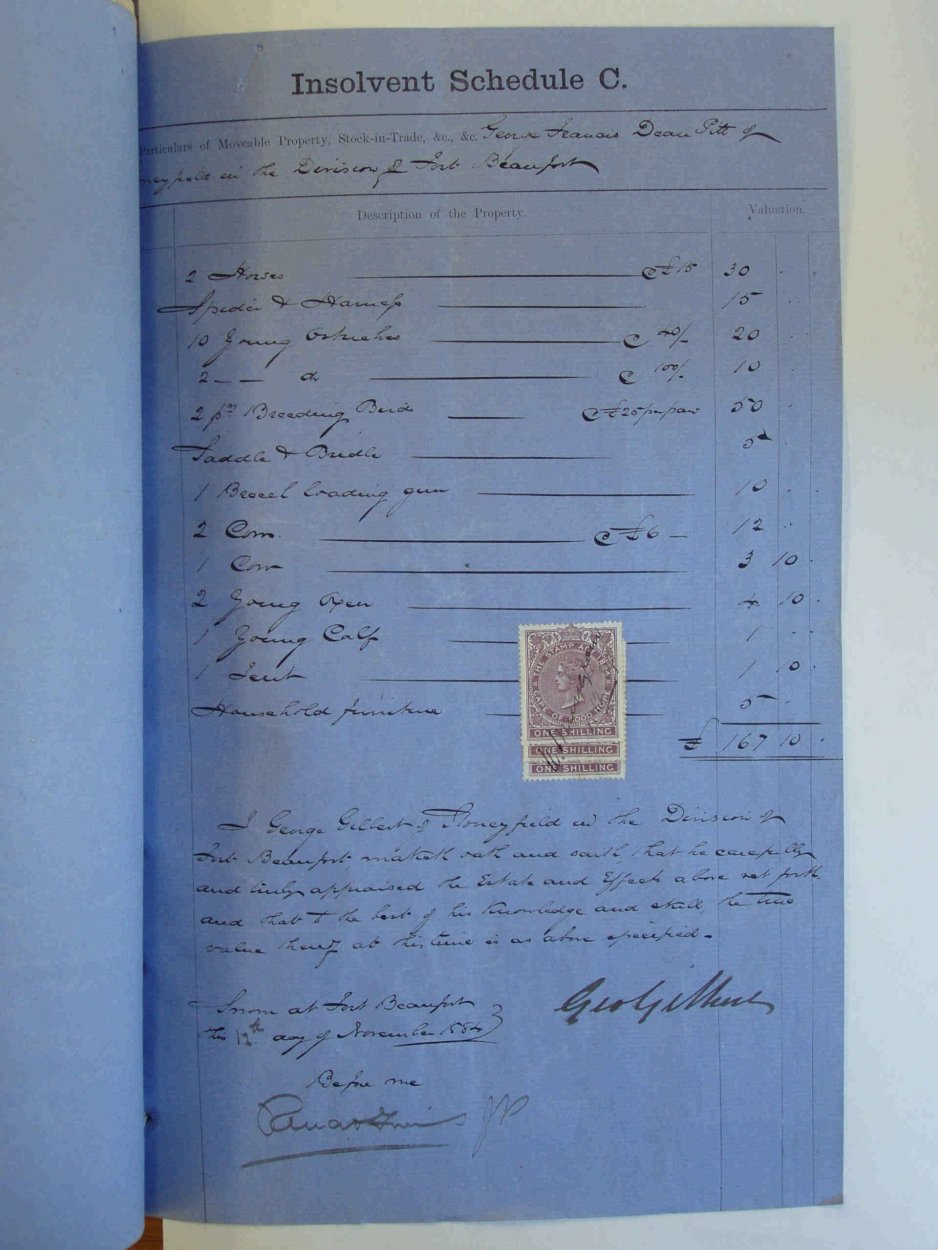 Insolvent Schedule C.
Particulars of Moveable Property, Stock-in-Trade, &c., &c. George Francis Dean Pitt of
neyfield in the Division of Fort Beaufort
Description of the Property. Valuation.
2 Horses @ £15 30 . .
Spider & Harness 15 . .
10 Young Ostriches @ 40/- 20 . .
2 — — do @ 100/- 10 . .
2 pr Breeding Birds @ £25 per pair 50 .
Saddle & Bridle 5 .
1 Breech loading gun 10 . .
2 Cows. @ £6 – 12 . .
1 Cow 3 10 .
2 Young Oxen 4 10 .
1 Young Calf 1 . .
1 Tent 1 10 .
Household furniture 5 .
£ 167 10 .
THE STAMP ACT
CAPE OF GOOD HOPE
ONE SHILLING
ONE SHILLING
ONE SHILLING
I George Gilbert of Stoneyfield in the Division of
Fort Beaufort, maketh oath and saith, that he carefully
and truly appraised the Estate and Effects above set forth,
and that to the best of his knowledge and skill, the true
value thereof at this time is as above specified.
Sworn at Fort Beaufort
this 12th day of November
Geo Gilbert
Before me
JP